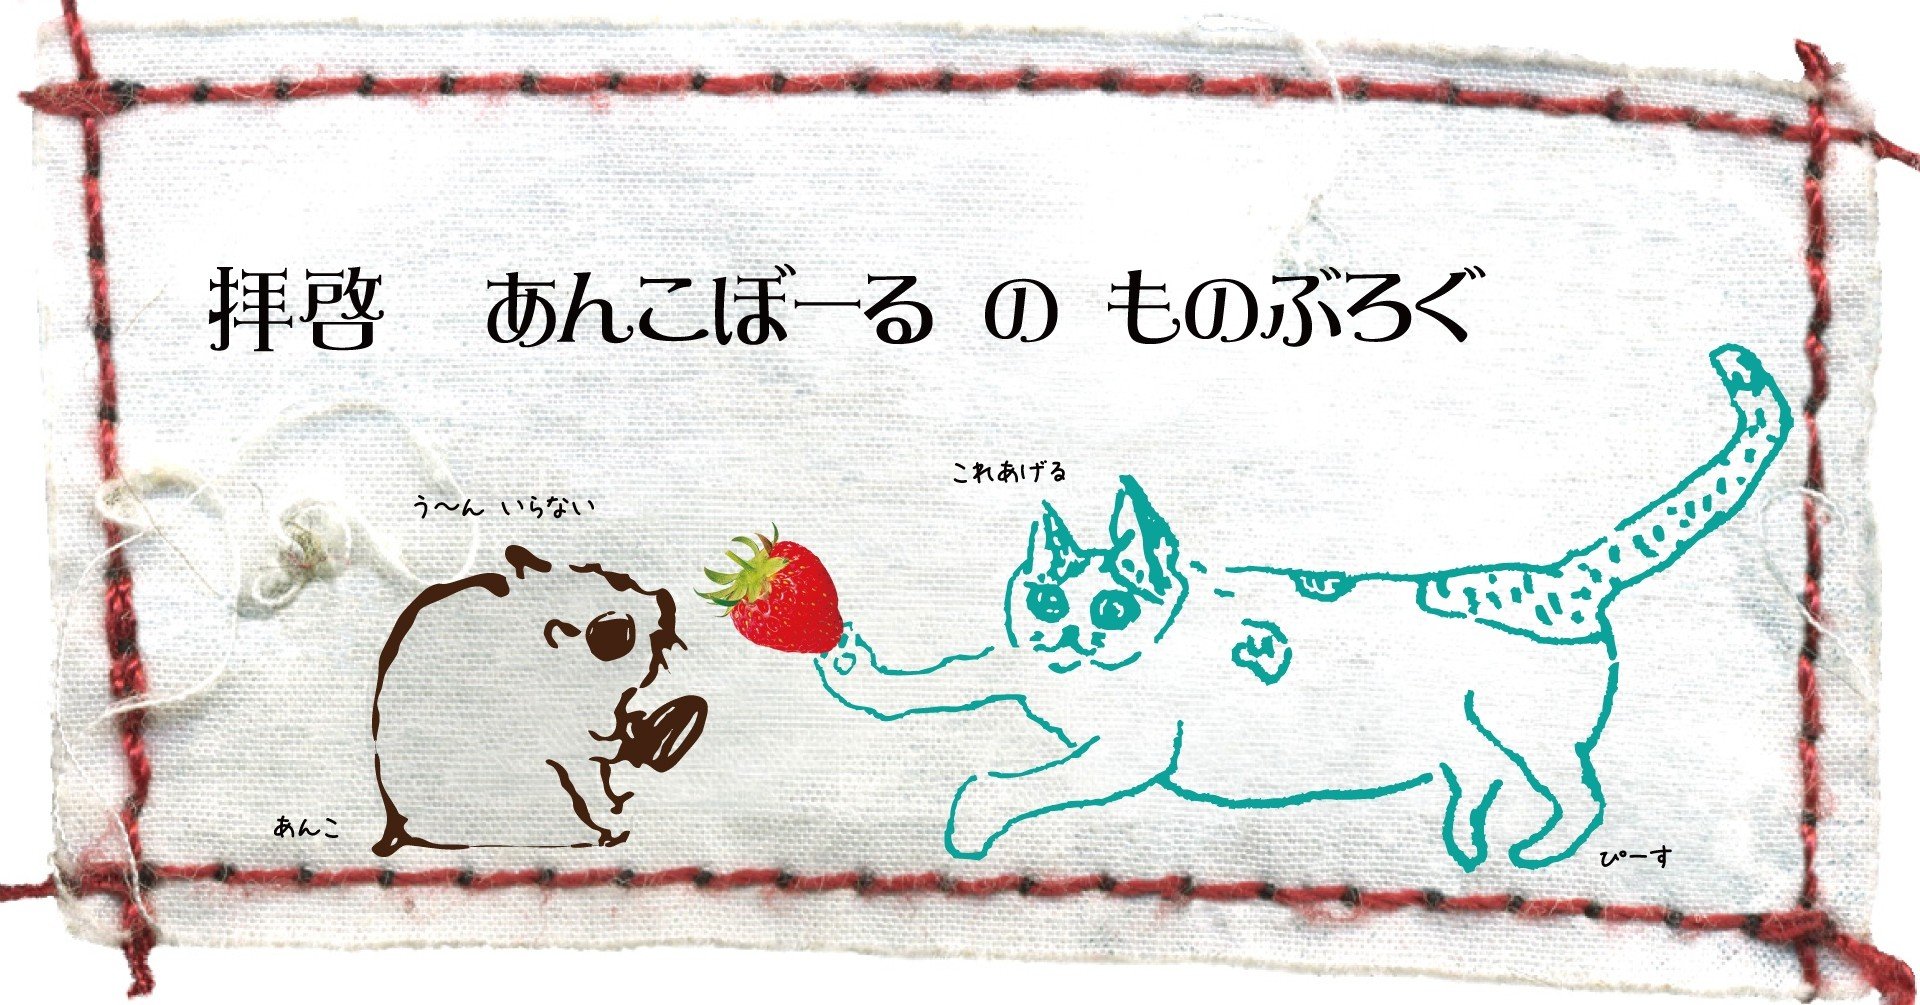 拝啓 あんこぼーる の ものぶろぐ
これあげる
う〜ん いらない
あんこ
ぴーす